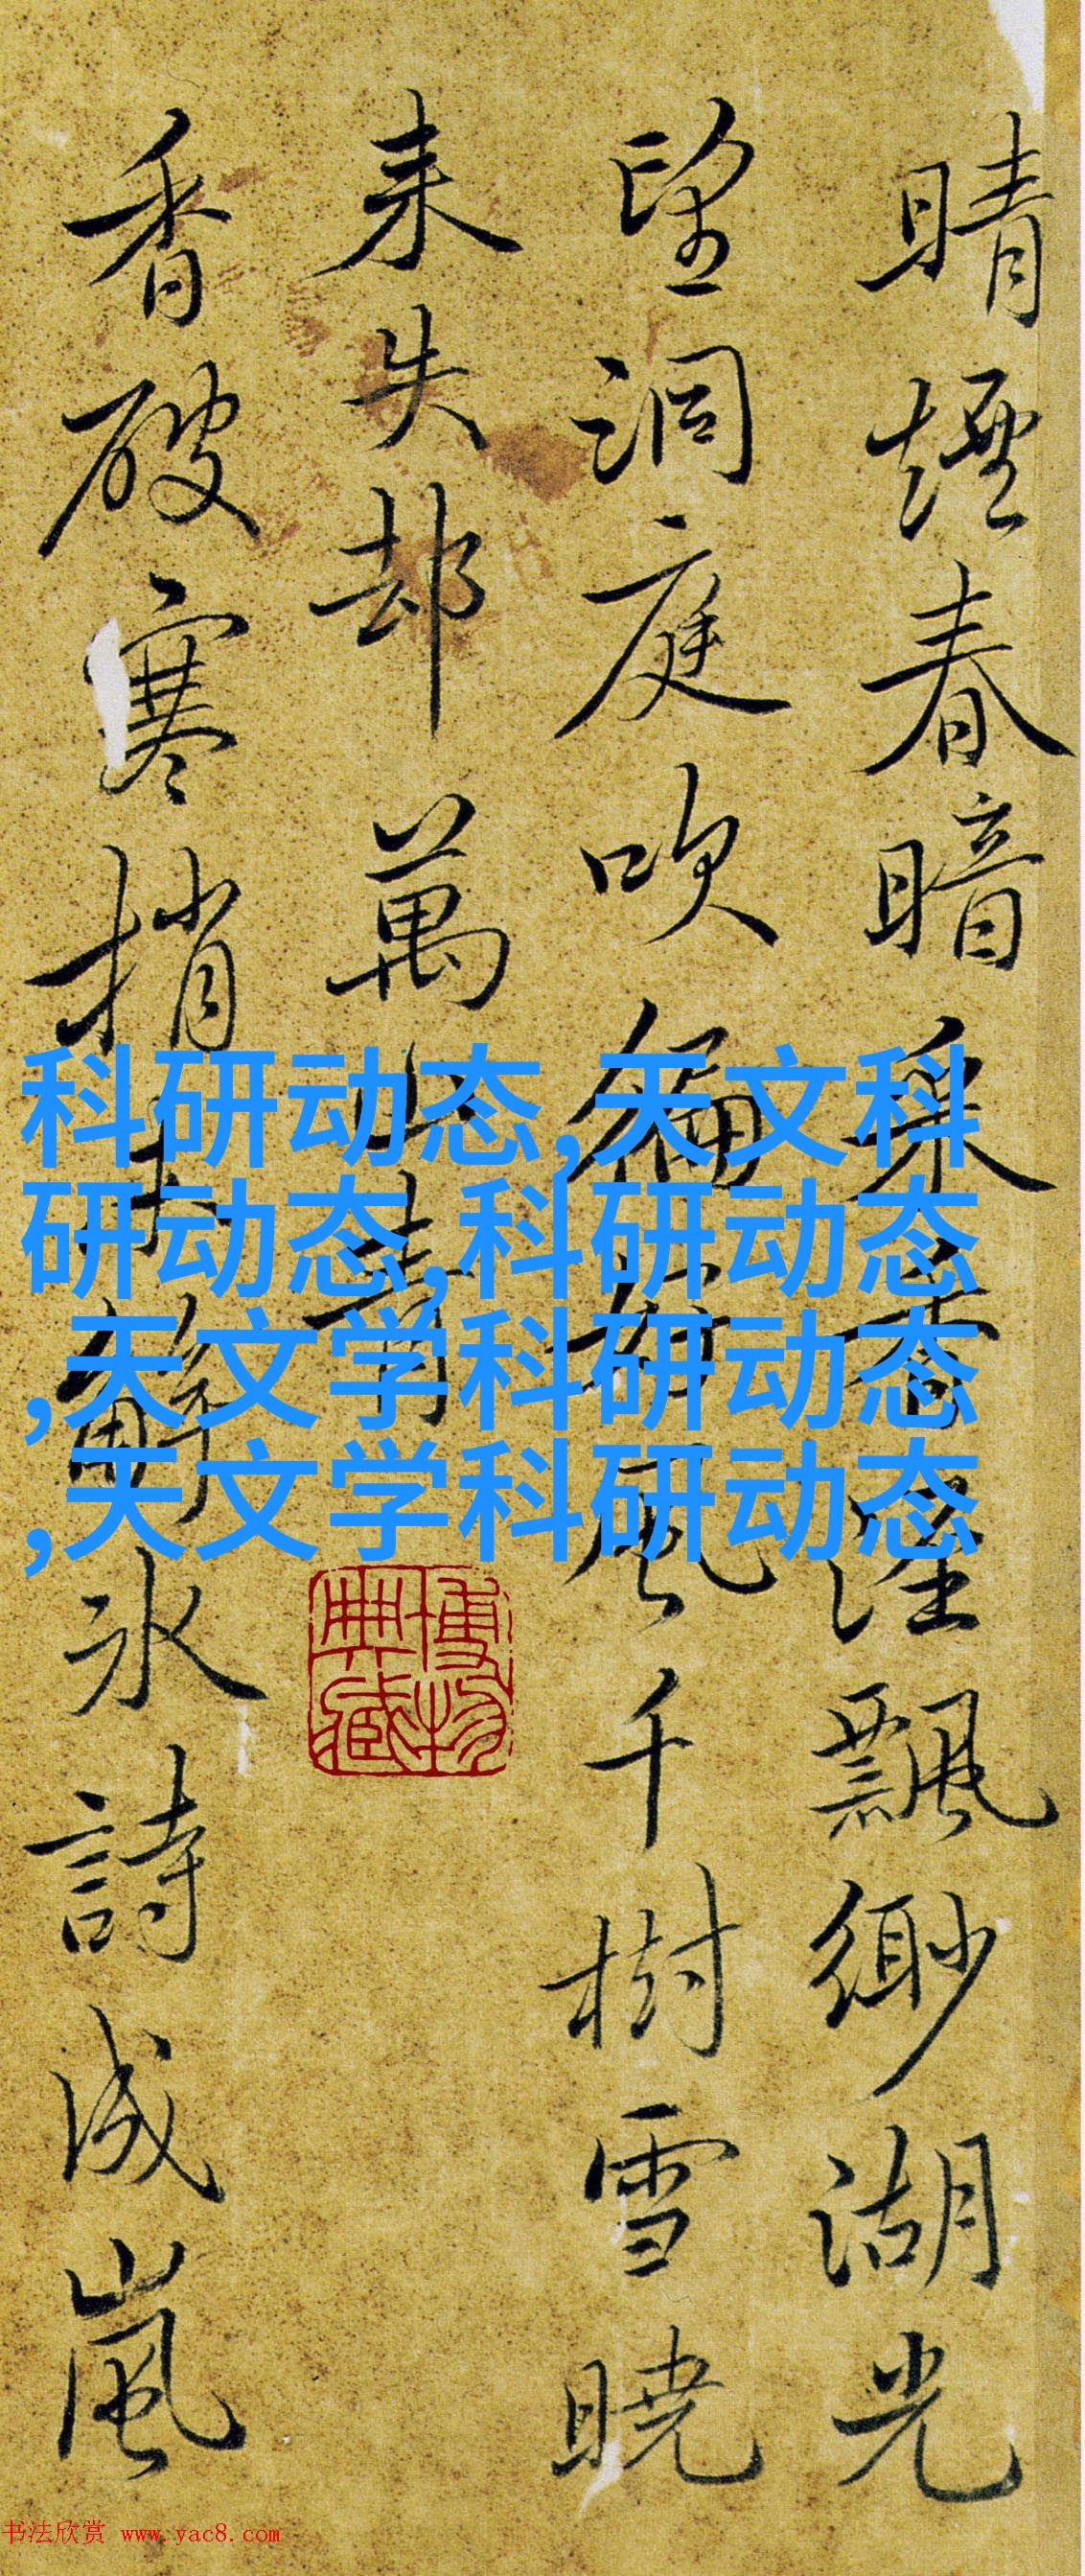 晴煙春暗采香涇飄緲湖光
望洞庭吹徧風千樹雪曉
来失却萬山青
香破寒梢解氷詩成嵐
科研动态,天文科
研动态,科研动态
,天文学科研动态
,天文学科研动态
博物
典藏
书法欣赏 www.yac8.com